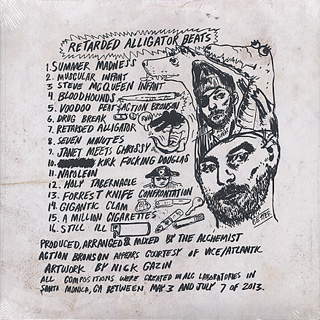 RETARDED ALLIGATOR BEATS
1. SUMMER MADNESS
2. MUSCULAR INFANT
3. STEVE MCQUEEN INFANT
4. BLOODHOUNDS
5. VOODOO FEAT. ACTION BRONSON
6. DRUG BREAK
7. RETARDED ALLIGATOR
8. SEVEN MINUTES
9. JANET MEETS CHRISSY
10. KIRK FUCKING DOUGLAS
11. NAPOLEIN
12. HOLY TABERNACLE
13. FORREST KNIFE CONFRONTATION
14. GIGANTIC CLAM
15. A MILLION CIGARETTES
16. STILL ILL
PRODUCED, ARRANGED & MIXED BY THE ALCHEMIST
ACTION BRONSON APPEARS COURTESY OF VICE/ATLANTIC
ARTWORK BY NICK GAZIN
ALL COMPOSITIONS WERE CREATED IN ALC LABORATORIES IN
SANTA MONICA, CA BETWEEN MAY 3 AND JULY 7 OF 2013.